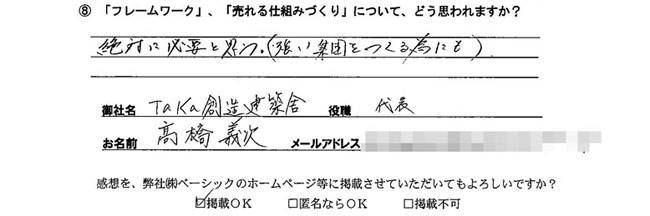 ⑧「フレームワーク」、「売れる仕組みづくり」について、どう思われますか？
絶対に必要と思う。(強い集団をつくる為にも)
御社名 TaKa創造建築舎 役職 代表
お名前 高橋義次 メールアドレス
感想を、弊社㈱ベーシックのホームページ等に掲載させていただいてもよろしいですか？
☑掲載ＯＫ □匿名ならＯＫ □掲載不可